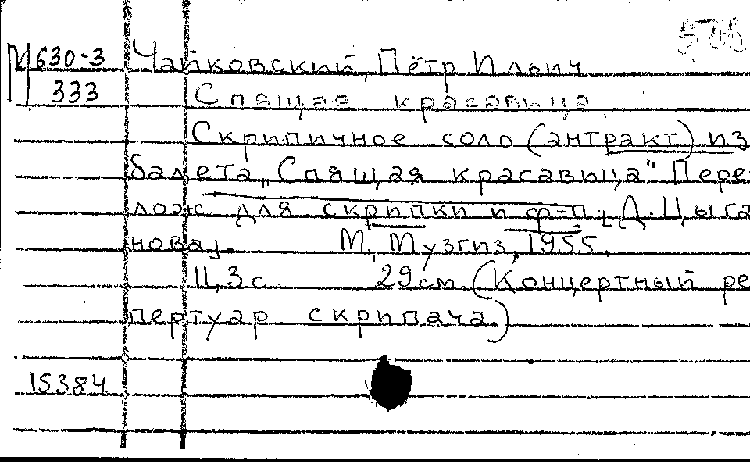 М630-3 Чайковский, Пётр Ильич
333 Спящая красавица.
Скрипичное соло (антракт) из
балета „Спящая красавица" Пере-
лож. для скрипки и ф-п. Д. Цыга-
нова. М., Музгиз, 1955.
11,3 с. 29 см. (Концертный ре-
пертуар скрипача)
15384